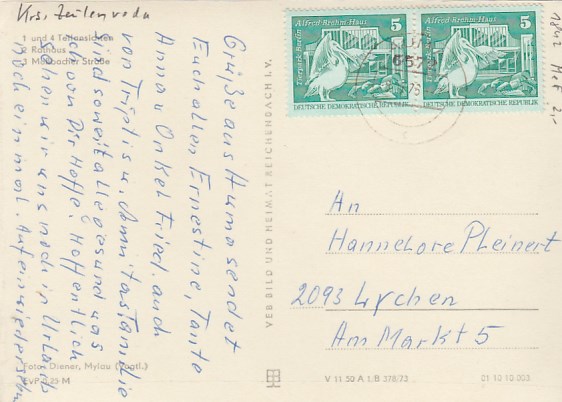 Krs. Zeulenroda
1 und 4 Teilansichten
2 Rathaus
3 Mühlbacher Straße
Grüße aus Huma sendet
Euch allen Ernestine, Tante
Anna u Onkel Fried. auch
von Triptis u. Familie
sind soweit alle gesund was
schon Dir Hoffe. Hoffentlich
sehen wir uns noch in Urlaub
noch einmal. Aufwiedersehn
Foto: Diener, Mylau (Vogtl.)
EVP 0,25 M
VEB BILD UND HEIMAT REICHENBACH I. V.
Alfred-Brehm-Haus 5
Tierpark Berlin
DEUTSCHE DEMOKRATISCHE REPUBLIK
Alfred-Brehm-Haus 5
Tierpark Berlin
DEUTSCHE DEMOKRATISCHE REPUBLIK
An
Hannelore Pleinert
2093 Lychen
Am Markt 5
V 11 50 A 1/B 378/73
01 10 10 003